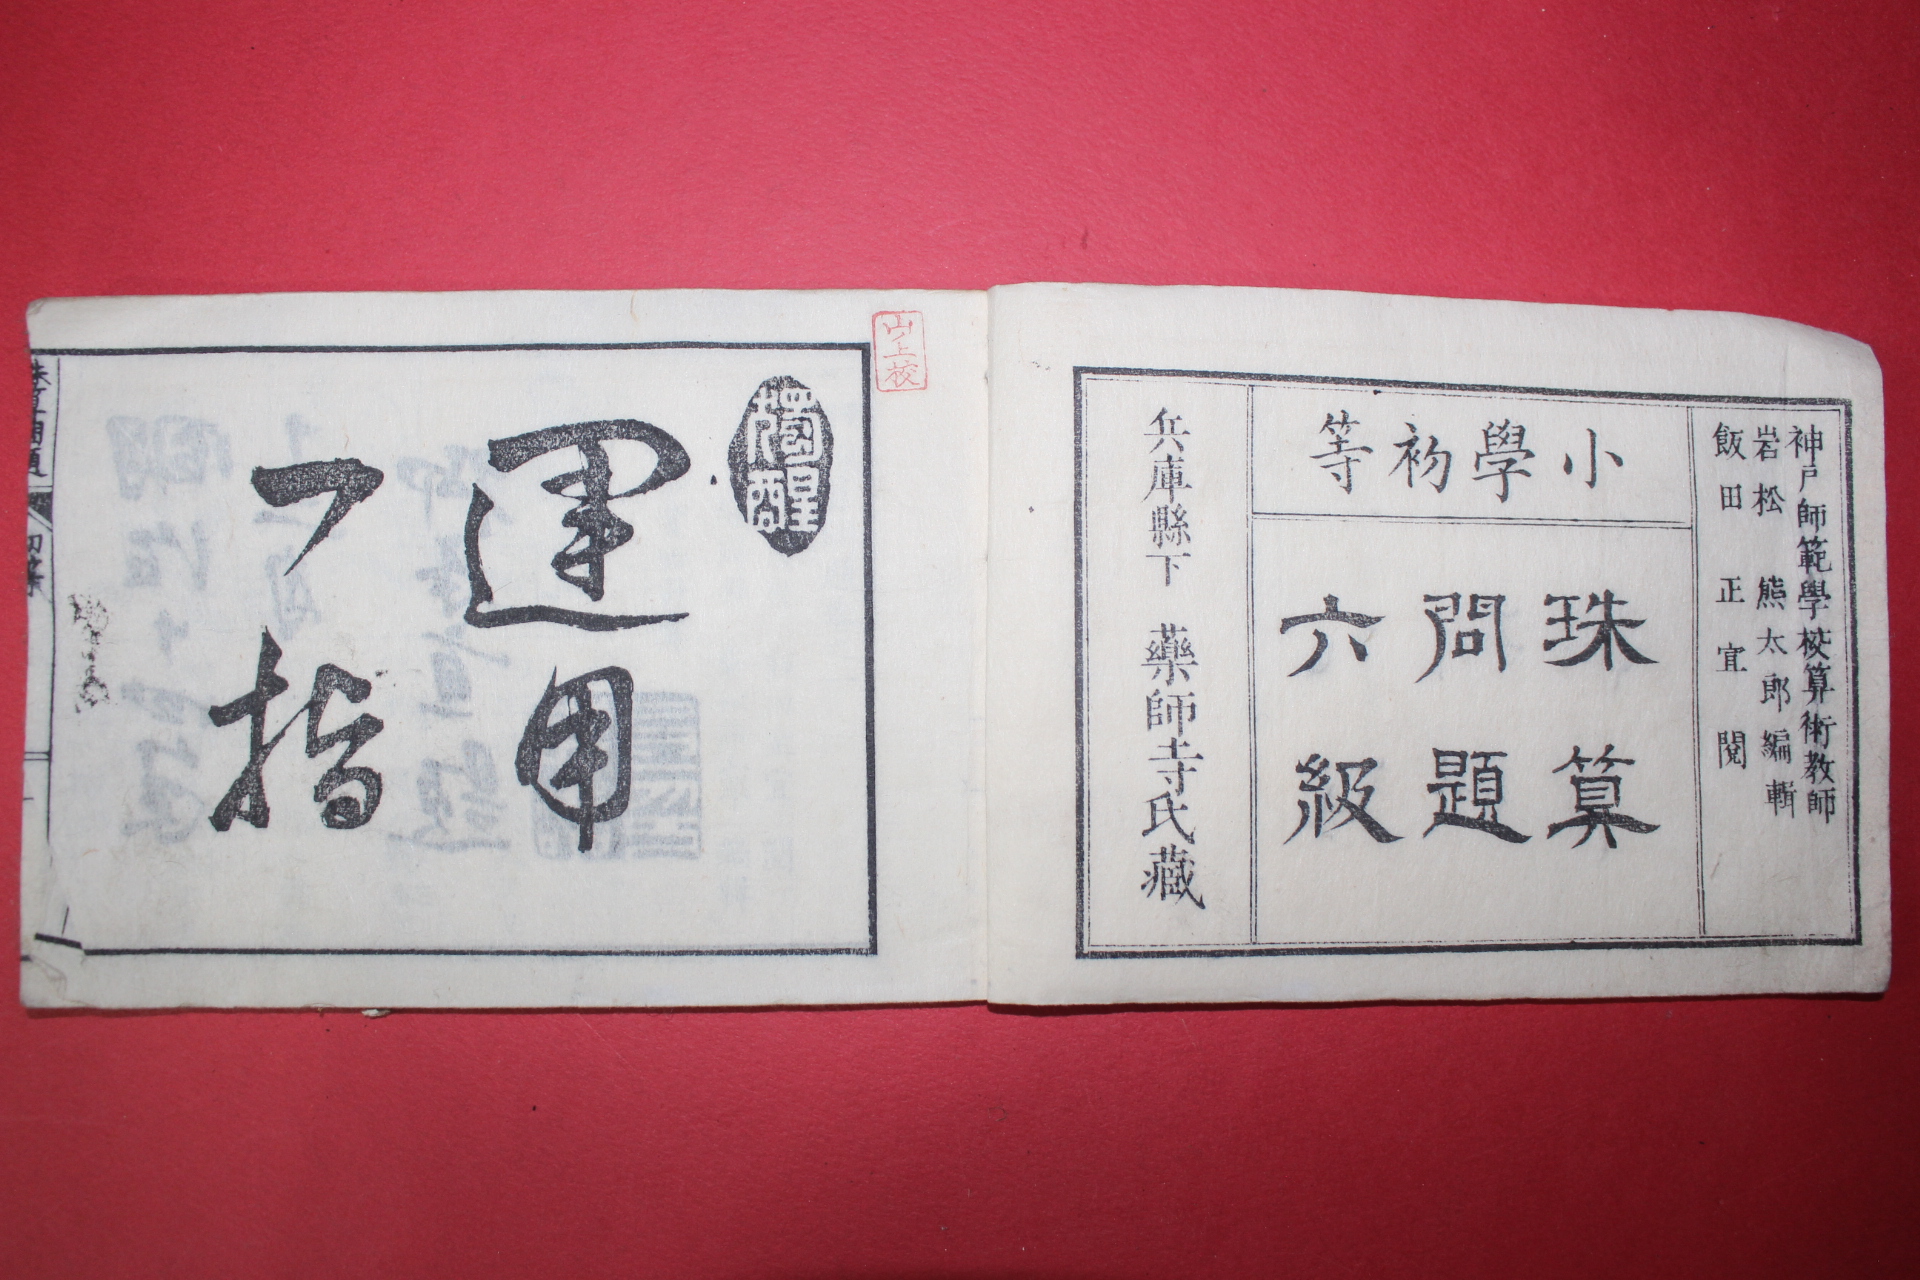 神戸師範學校算術教師
岩松熊太郎編輯
飯田正宜閲
小學初等
珠算
問題
六級
兵庫縣下 藥師寺氏藏
山上校
獨醒
運用
一指
珠算問題